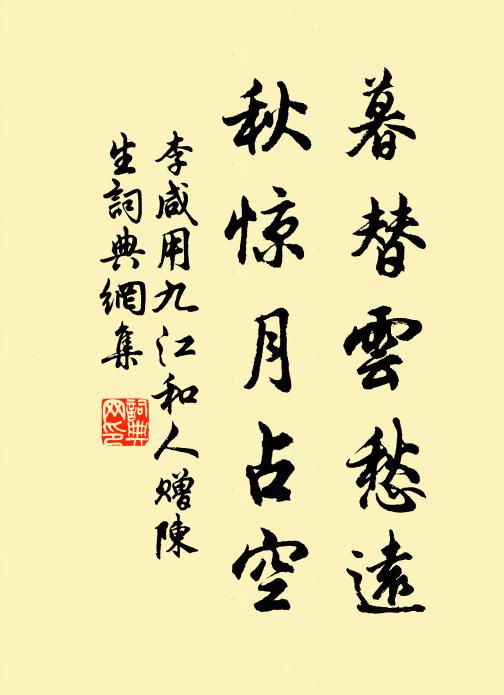 暮替雲愁遠
秋惊月占空
李咸用九江和人赠陳
生詞典網集
詞典
网印